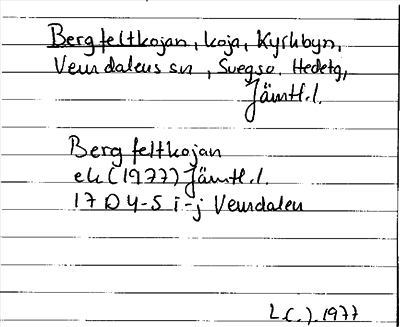 Bergfeltkojan, koja, Kyrkbyn,
Vemdalens sn, Svegs o. Hedetg,
Jämtl. l.
Bergfeltkojan
ek (1977) Jämtl. l.
17 D 4-5 i-j Vemdalen
L(.). 1977